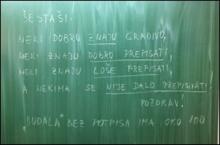 ŠESTAŠI:
NEKI DOBRO ZNAJU GRADIVO,
NEKI ZNAJU DOBRO PREPISATI,
NEKI ZNAJU LOŠE PREPISATI,
A NEKIMA SE NIJE DALO PREPISIVATI.
POZDRAV,
"BUDALA" BEZ POTPISA IMA OKO 100